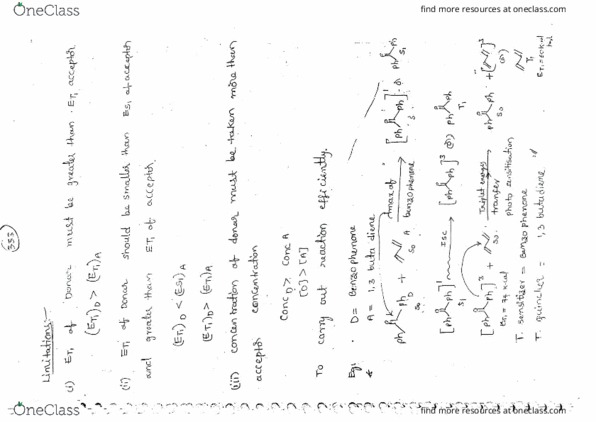 OneClass
find more resources at oneclass.com
553
Limitations:-
(i) ET₁ of Donar must be greater than ET₁ acceptor
(ET₁)D > (ET₁)A
(ii) ET₁ of Donar should be smaller than ES₁ of acceptor
and greater than ET₁ of acceptor.
(ET₁)D < (ES₁)A
(ET₁)D > (ET₁)A
(iii) concentration of donar must be taken more than
acceptor concentration
Conc D > Conc A
[D] > [A]
To carry out reaction efficiently.
Eg:- D = Benzophenone
A = 1,3 buta diene
λmax of
benzophenone
Ph Ph D S₀ + S₀ A
[Ph Ph]¹ S₁ or Ph Ph S₁
[Ph Ph]¹ S₁ ISC [Ph Ph]³ or Ph Ph T₁
[Ph Ph]³ + S₀
Triplet energy
transfer
photo sensitisation
Ph Ph S₀ + [ ]³ (or)
T₁
ET₁ = 74 kcal
T. sensitizer = Benzophenone
T. quincher = 1,3 butadiene
OneClass
find more resources at oneclass.com